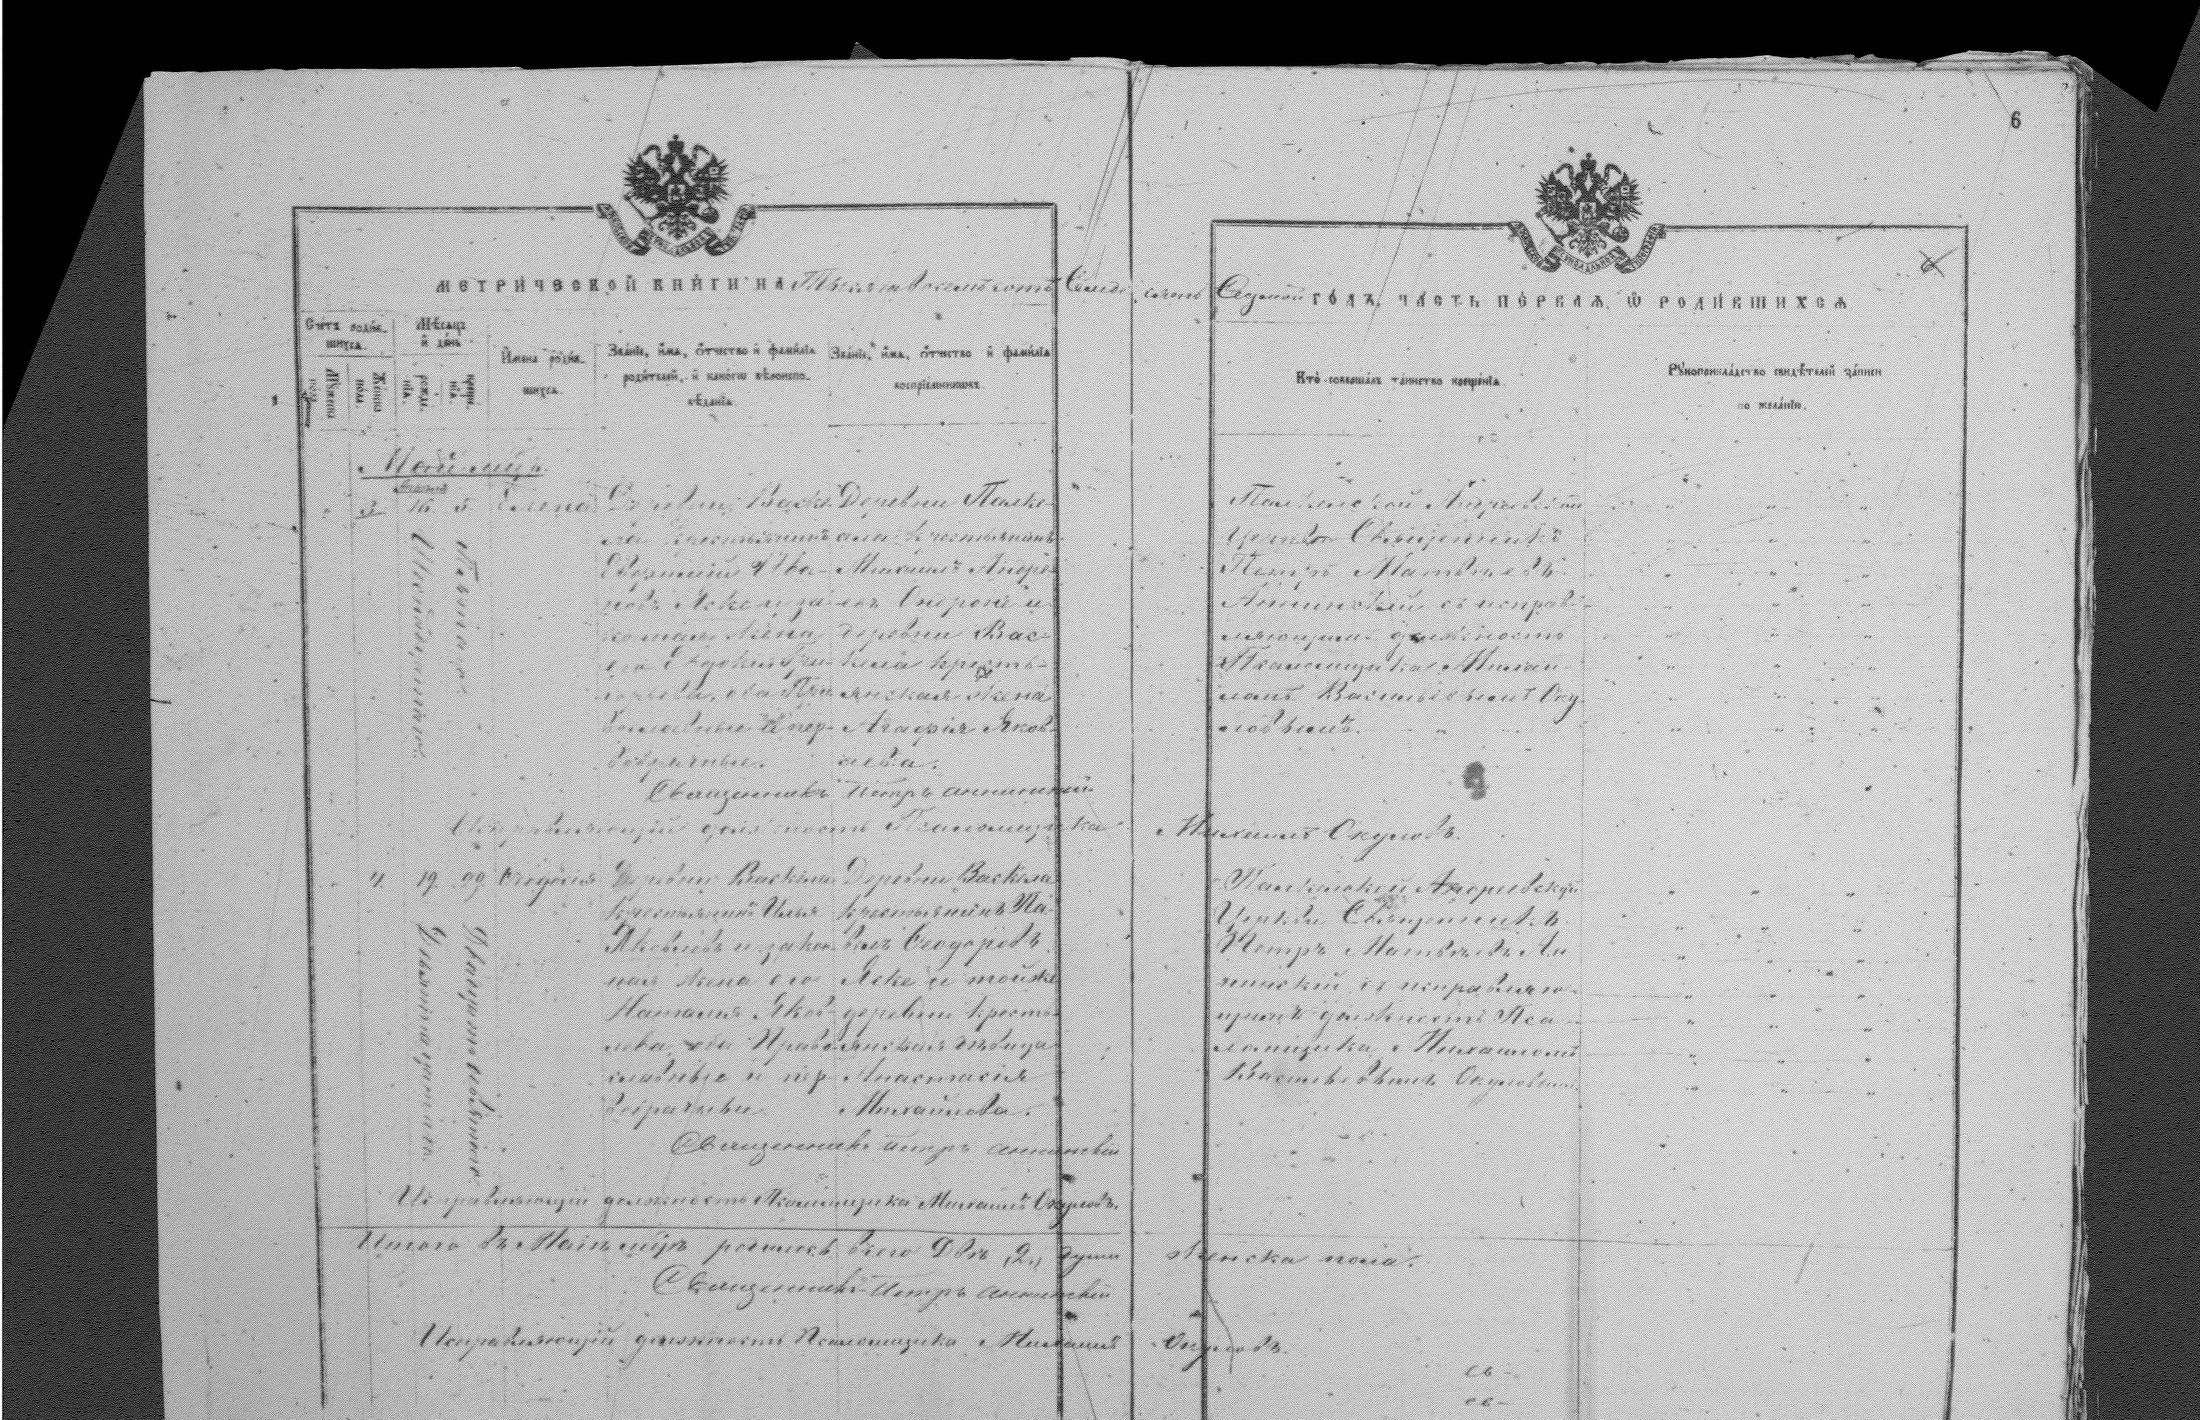 6
МЕТРИ́ЧЕСКОЙ КНИ́ГИ НА Тысяча восемьсотъ Семьде сятъ Седьмой ГО́ДЪ, ЧА́СТЬ ПЕ́РВАѦ, Ѿ РОДИ́ВШИХСѦ
Сче́тъ роди́в-
шихсѧ.
Мѣ́сѧцъ
и҆ де́нь
Мꙋ́жеска по́ла
Же́нска по́ла
рожде́-
нїѧ.
креще́-
нїѧ.
И҆мена̀ роди́в-
шихсѧ.
Зва́нїе, и҆́мѧ, ѻ҆́тчество и҆ фами́лїѧ
роди́телей, и҆ како́гѡ вѣроиспо-
вѣ́данїѧ.
Зва́нїе, и҆́мѧ, ѻ҆́тчество и҆ фами́лїѧ
воспрїе́мникѡвъ.
Кто̀ соверша́лъ та́инство креще́нїѧ.
Рꙋкоприкла́дство свидѣ́телей за́писи
по жела́нїю.
Май мцъ.
3. 16. 5. Елена
Деревни Васке-
ла крестьянинъ
Ива-
новъ Яске и за-
конная жена
его Евдокия Гри-
горьева, оба Пра-
вославные и пер-
вобрачные.
Деревни Палке-
ала крестьянинъ
Михаилъ Андре-
евъ и
деревни Вас-
кела кресть-
янская жена
Агафія Яков-
лева.
Андреевской
церкви Священникъ
Петръ Матвѣевъ
Аннинскій съ исправ-
ляющимъ должность
Псаломщика Михаи-
ломъ Васильевымъ Оку-
ловымъ.
Священникъ Петръ Аннинскій
Исправляющій должность Псаломщика Михаилъ Окуловъ.
4. 19. 29. Ѳеодосія
Девятнадцатаго.
Двадцать девятаго.
Деревни Васкела
крестьянинъ Илья
Яковлевъ и закон-
ная жена его
Наталия Яков-
лева, оба Право-
славные и пер-
вобрачные.
Деревни Васкела
крестьянинъ Па-
велъ Ѳеодоровъ
Яске и той же
деревни кресть-
янская дѣвица
Анастасія
Михайлова.
Андреевской
Церкви Священникъ
Петръ Матвѣевъ Ан-
нинскій съ исправляю-
щимъ должность Пса-
ломщика Михаиломъ
Васильевымъ Окуловымъ.
Священникъ Петръ Аннинскій
Исправляющій должность Псаломщика Михаилъ Окуловъ.
Итого въ Маѣ мцѣ родилось всего Двѣ (2.) души женска пола.
Священникъ Петръ Аннинскій
Исправляющій должность Псаломщика Михаилъ Окуловъ.